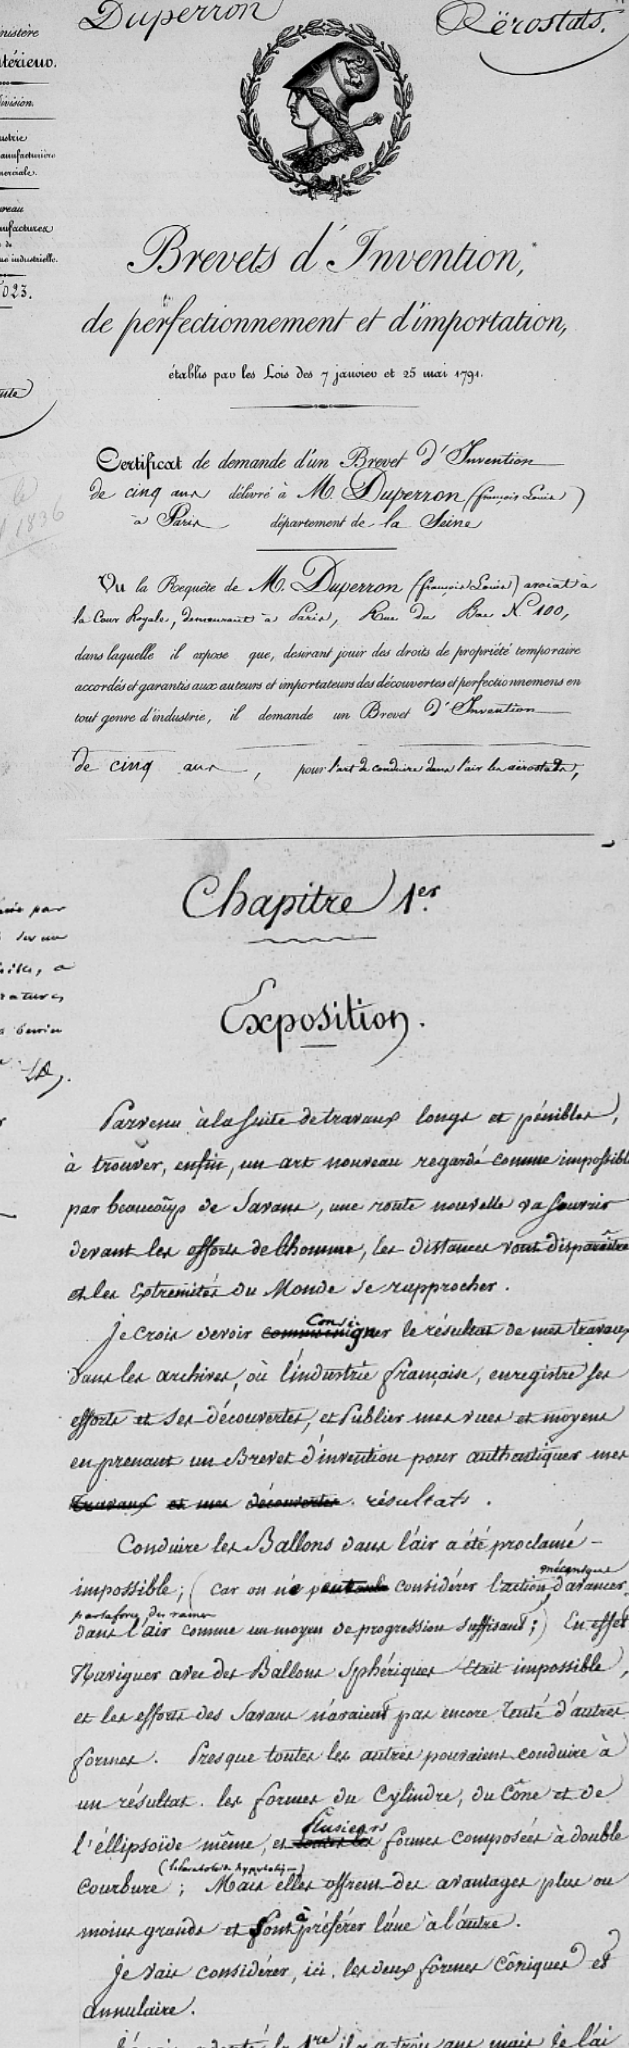 Duperron
Aërostats.
nistère
térieur.
ivision.
ustrie
anufacturière
merciale.
reau
nufactures
de
ue industrielle.
023.
1836
Brevets d'Invention,
de perfectionnement et d'importation,
établis par les Lois des 7 janvier et 25 mai 1791.
Certificat de demande d'un Brevet d'Invention
de cinq ans délivré à M. Duperron (françois Louis)
à Paris département de la Seine
Vu la Requête de M. Duperron (françois Louis) avocat à
la Cour Royale, demeurant à Paris, Rue du Bac No. 100,
dans laquelle il expose que, desirant jouir des droits de propriété temporaire
accordés et garantis aux auteurs et importateurs des découvertes et perfectionnemens en
tout genre d'industrie, il demande un Brevet d'Invention
de cinq ans, pour l'art de conduire dans l'air les aërostats,
Chapitre 1er.
Exposition.
par
Parvenu à la suite de travaux longs et pénibles,
à trouver, enfin, un art nouveau regardé comme impossible
par beaucoup de Savans, une route nouvelle va s'ouvrir
devant les efforts de l'homme, les distances vont disparaître
et les Extremités du Monde se rapprocher.
Je crois devoir consigner le résultat de mes travaux
dans les archives, où l'industrie française, enregistre ses
efforts et ses découvertes, et Publier mes vues et moyens
en prenant un Brevet d'invention pour authentiquer mes
travaux et mes découvertes. résultats.
Conduire les Ballons dans l'air a été proclamé
impossible; (car on ne peut considérer l'action mécanique d'avancer
par la force des rames
dans l'air comme un moyen de progression suffisant;) En effet
Naviguer avec des Ballons Sphériques était impossible,
et les efforts des Savans n'avaient pas encore tenté d'autres
formes. Presque toutes les autres pouvaient conduire à
un résultat. les formes du Cylindre, du Cône et de
l'éllipsoïde même, et Plusieurs formes composées à double
courbure; Mais elles offrent des avantages plus ou
moins grands et font à préférer l'une à l'autre.
Je vais considérer, ici, les deux formes côniques et
annulaire.
la 1re il y a trois ans mais Je l'ai